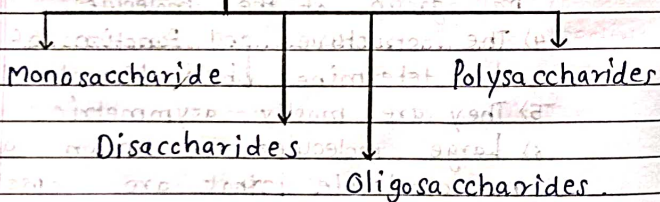 Monosaccharide
Polysaccharides
Disaccharides
Oligosaccharides.